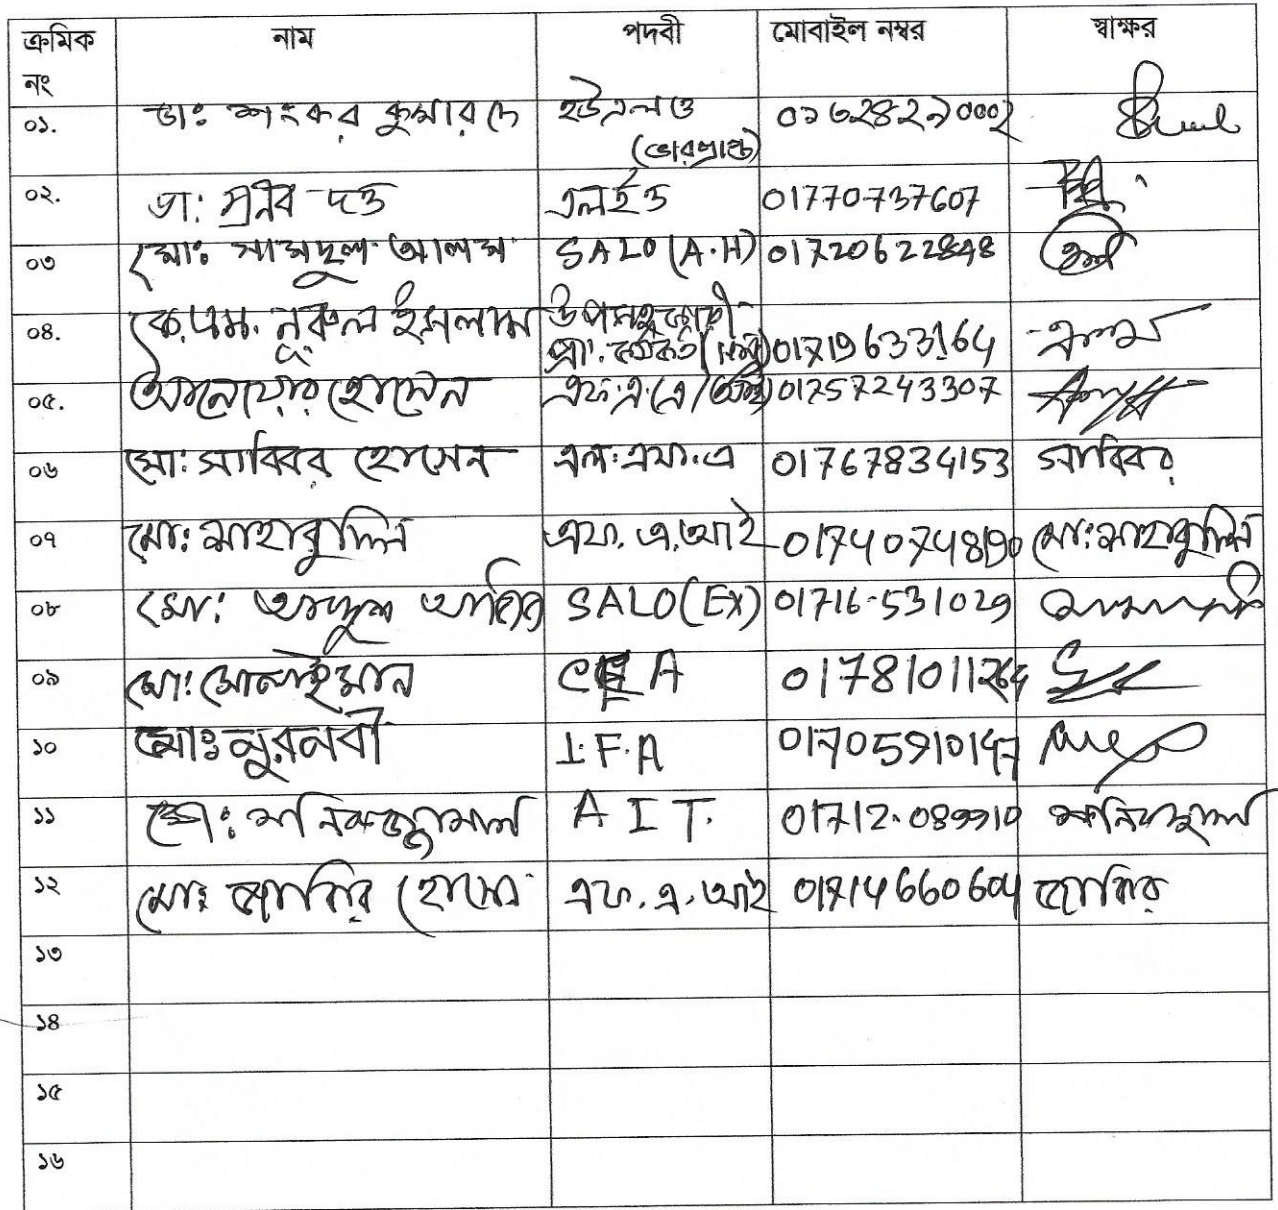 ক্রমিক নং নাম পদবী মোবাইল নম্বর স্বাক্ষর
০১. ডাঃ শংকর কুমার দে ইউএলও (ভারপ্রাপ্ত)
০২. ডা: প্রনব দত্ত এলইও 01770737607
০৩ মোঃ সামদুল আলম SALO (A.H) 01720622848
০৪. কে.এম. নুরুল ইসলাম উপসহকারী প্রা. কর্মকর্তা 01719633164
০৫. আনোয়ার হোসেন 01757243307
০৬ মো: সাব্বির হোসেন এল.এফ.এ 01767834153 সাব্বির
০৭ মো: মাহাবুদ্দিন এফ.এ.আই মো: মাহাবুদ্দিন
০৮ মো: আব্দুল SALO (EX) 01716-531029
০৯ মো: সোলাইমান
১০ মোঃ নুরনবী I.F.A 01705910147
১১ মো: মনিরুজ্জামান A I T. 01712-089910
১২ মোঃ জাকির হোসেন এফ.এ.আই 01714660604 জাকির
১৩
১৪
১৫
১৬